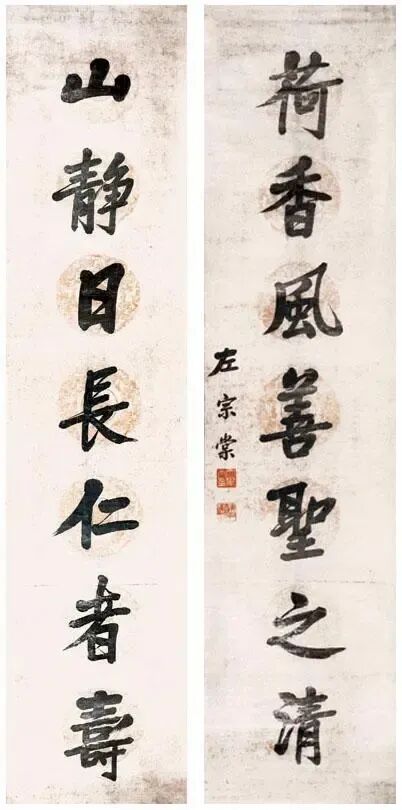 山静日長仁者壽
荷香風善聖之清
左宗棠